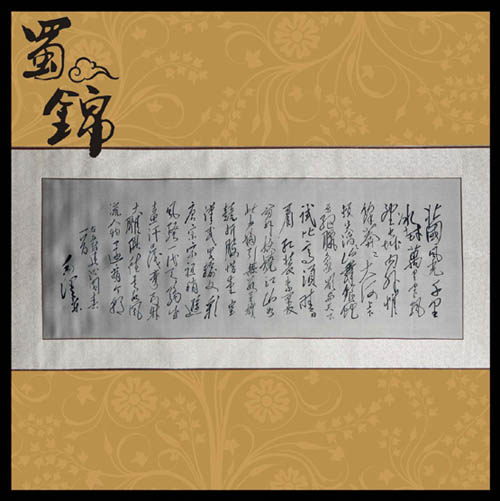 蜀
錦
北國風光千里
冰封萬里雪飄
望長城內外惟
餘莽莽大河上下
頓失滔滔山舞銀蛇
原馳蠟象欲與天公
試比高須晴日
看紅裝素裹
分外妖嬈江山如
此多嬌引無數英雄
競折腰惜秦皇
漢武略輸文采
唐宗宋祖稍遜
風騷一代天驕成吉
思汗只識彎弓射
大雕俱往矣數風
流人物還看今朝
毛澤東